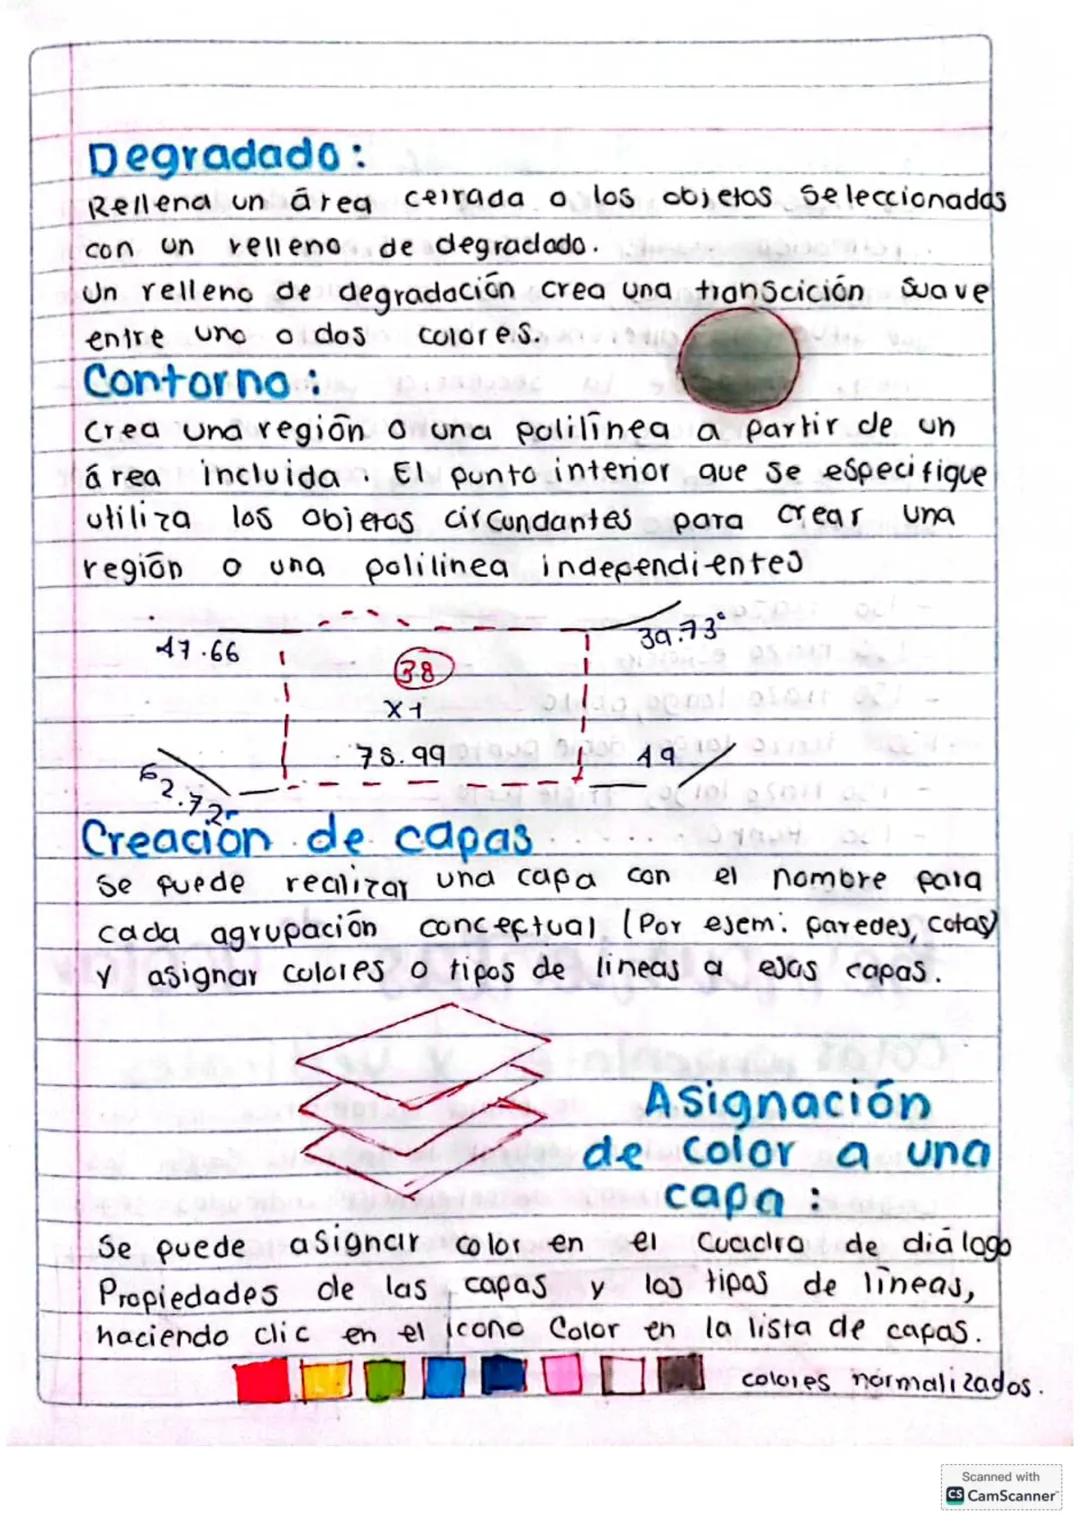 Degradado:
Rellena un área cerrada o los objetos seleccionados
con un relleno de degradado.
Un relleno de degradación crea una transcición suave
entre uno o dos colores.
Contorno:
Crea una región o una polilínea a partir de un
área incluida. El punto interior que se especifique
utiliza los objetos circundantes para crear una
región o una polilinea independientes
47.66
39.73°
38
X1
78.99
49
62.72°
Creación de capas
Se puede realizar una capa con el nombre para
cada agrupación conceptual (Por ejem: paredes, cotas)
y asignar colores o tipos de lineas a esas capas.
Asignación
de color a una
capa:
Se puede asignar color en el Cuadro de diálogo
Propiedades de las capas y los tipos de líneas,
haciendo clic en el icono Color en la lista de capas.
colores normalizados.
Scanned with
CS CamScanner